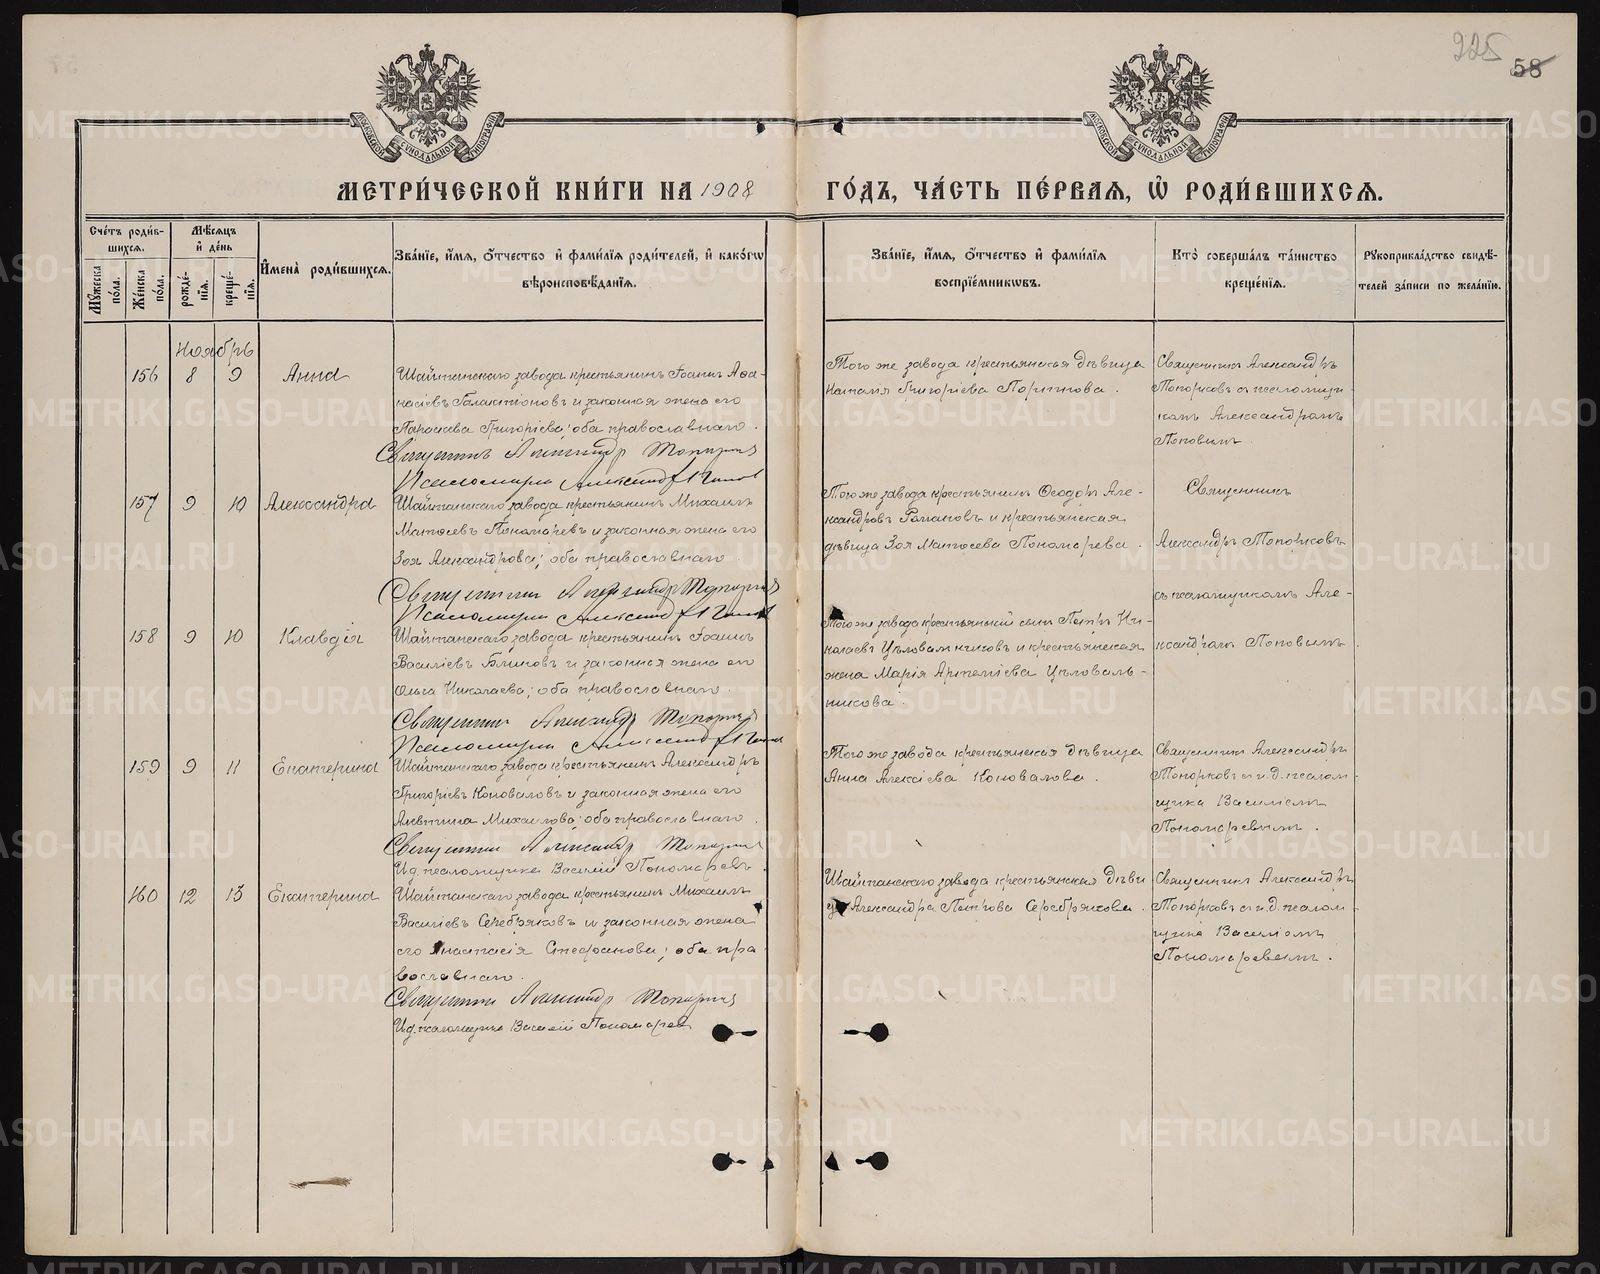 225
58
МОСКОВСКОЙ СѴНОДАЛЬНОЙ ТИПОГРАФІИ
МОСКОВСКОЙ СѴНОДАЛЬНОЙ ТИПОГРАФІИ
МЕТРИ́ЧЕСКОЙ КНИ́ГИ НА 1908
ГО́ДЪ, ЧА́СТЬ ПЕ́РВАѦ, Ѡ҆ РОДИ́ВШИХСѦ.
Сче́тъ роди́в-
шихсѧ.
Мꙋ́жеска по́ла.
Же́нска по́ла.
Мѣ́сѧцъ
и҆ де́нь
рожде́-
нїѧ.
креще́-
нїѧ.
И҆мена̀ роди́вшихсѧ.
Зва́нїе, и҆́мѧ, ѻ҆́тчество и҆ фами́лїѧ роди́телей, и҆ како́гѡ
вѣроисповѣ́данїѧ.
Зва́нїе, и҆́мѧ, ѻ҆́тчество и҆ фами́лїѧ
воспрїе́мникѡвъ.
Кто̀ соверша́лъ та́инство
креще́нїѧ.
Рꙋкоприкла́дство свидѣ́-
телей за́писи по жела́нїю.
Ноябрь
156 8 9 Анна
Шайтанскаго завода крестьянинъ Іоаннъ Аѳа-
насіевъ Галактіоновъ и законная жена его
Параскева Григоріева; оба православнаго.
Священникъ Александр Топорков
Псаломщикъ Александръ Попов
Того же завода крестьянская дѣвица
Наталія Григоріева
Священникъ Александръ
Топорковъ съ псаломщи-
комъ Александромъ
Поповымъ.
157 9 10 Александра
Шайтанскаго завода крестьянинъ Михаилъ
Матѳеевъ Пономаревъ и законная жена его
Зоя Александрова; оба православнаго.
Священникъ Александръ Топорков
Псаломщикъ Александръ Попов
Того же завода крестьянинъ Ѳеодоръ Але-
ксандровъ Романовъ и крестьянская
дѣвица Зоя Матѳеева Пономарева.
Священникъ
Александръ Топорковъ
съ псаломщикомъ Але-
ксандромъ Поповымъ.
158 9 10 Клавдія
Шайтанскаго завода крестьянинъ Іоаннъ
Василіевъ Блиновъ и законная жена его
Ольга Николаева; оба православнаго.
Священникъ Александръ Топорков
Псаломщикъ Александръ Попов
Того же завода крестьянскій сынъ Петръ Ни-
колаевъ Цѣловальниковъ и крестьянская
жена Марія Артеміева Цѣловаль-
никова.
159 9 11 Екатерина
Шайтанскаго завода крестьянинъ Александръ
Григоріевъ Коноваловъ и законная жена его
Алевтина Михаилова; оба православнаго.
Священникъ Александр Топорков
И.д. псаломщика Василій Пономаревъ.
Того же завода крестьянская дѣвица
Анна Алексіева Коновалова.
Священникъ Александръ
Топорковъ съ и.д. псалом-
щика Василіемъ
Пономаревымъ.
160 12 13 Екатерина
Шайтанскаго завода крестьянинъ Михаилъ
Василіевъ Серебряковъ и законная жена
его Анастасія Стефанова; оба пра
вославнаго.
Священникъ Александр Топорков
И.д. псаломщика Василій Пономарев
Шайтанскаго завода крестьянская дѣви
ца Александра Петрова Серебрякова.
Священникъ Александръ
Топорковъ съ и.д. псалом-
щика Василіемъ
Пономаревымъ.
METRIKI.GASO-URAL.RU